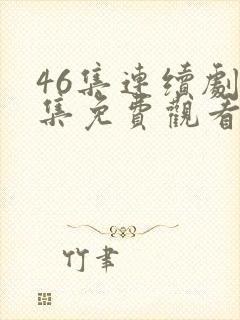 46集連續劇
集免費觀看
竹聿